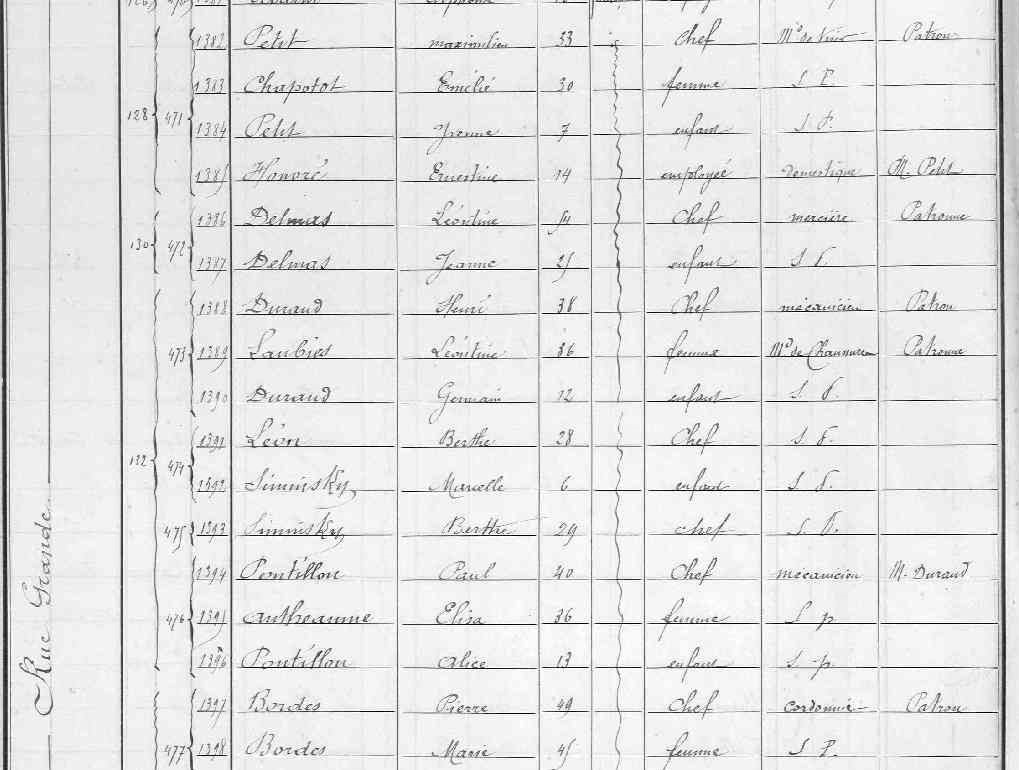 Rue Grande
1382 Petit maximilien 33 Chef Md de Vins Patron
1383 Chapotot Emélie 30 femme S P.
128 471 1384 Petit Yvonne 7 enfant S P.
1385 Honoré Ernestine 14 employée Domestique M. Petit
1386 Delmas Léontine 54 Chef mercière Patronne
130 472 1387 Delmas Jeanne 25 enfant S P.
1388 Durand Henri 38 Chef mécanicien Patron
473 1389 Laubies Léontine 36 femme Md de Chaussures Patronne
1390 Durand Germain 12 enfant S P.
1391 Léon Berthe 28 Chef S P.
132 474 1392 Siminsky Marcelle 6 enfant S P.
475 1393 Siminsky Berthe 29 chef S. P.
1394 Pontillon Paul 40 Chef mécanicien M. Durand
476 1395 antheaume Elisa 36 femme S p
1396 Pontillon alice 13 enfant S p.
1397 Bordes Pierre 49 Chef cordonnier Patron
477 1398 Bordes Marie 45 femme S P.